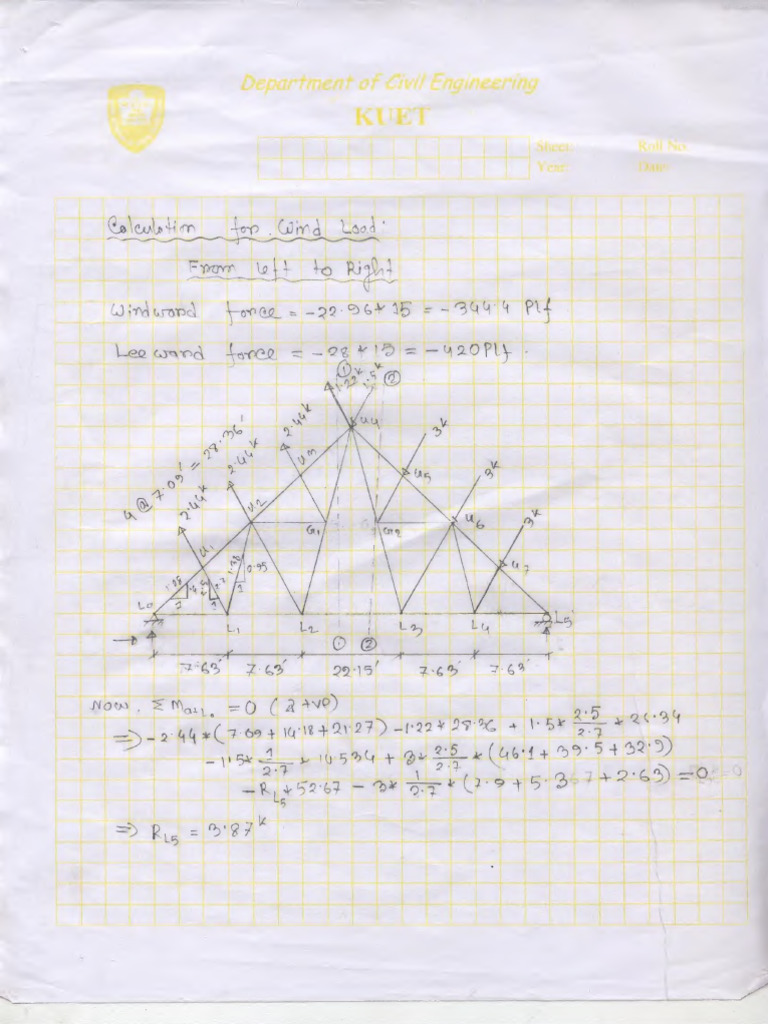 Department of Civil Engineering
KUET
Sheet:
Roll No:
Year:
Date:
Calculation for Wind Load.
From left to Right
Windward force = -22.96*15 = -344.4 Plf
Leeward force = -28*15 = -420Plf.
① ②
1.22k 1.5k
U4
4 @ 7.09' = 28.36'
2.44k
U3
U5
3k
2.44k
U2
G1
G2
U6
3k
2.44k
U1
U7
3k
1
1
0.95
1
L0
L1
L2
L3
L4
L5
① ②
7.63' 7.63' 22.15' 7.63' 7.63'
Now, ΣM at L0 = 0 ( +ve)
=> -2.44*(7.09+14.18+21.27) -1.22*28.36 + 1.5*2.5/2.7*26.34
-1.5*1/2.7*10.534 + 3*2.5/2.7*(46.1+39.5+32.9)
-RL5*52.67 - 3*1/2.7*(7.9+5.267+2.63) = 0
=> RL5 = 3.87k